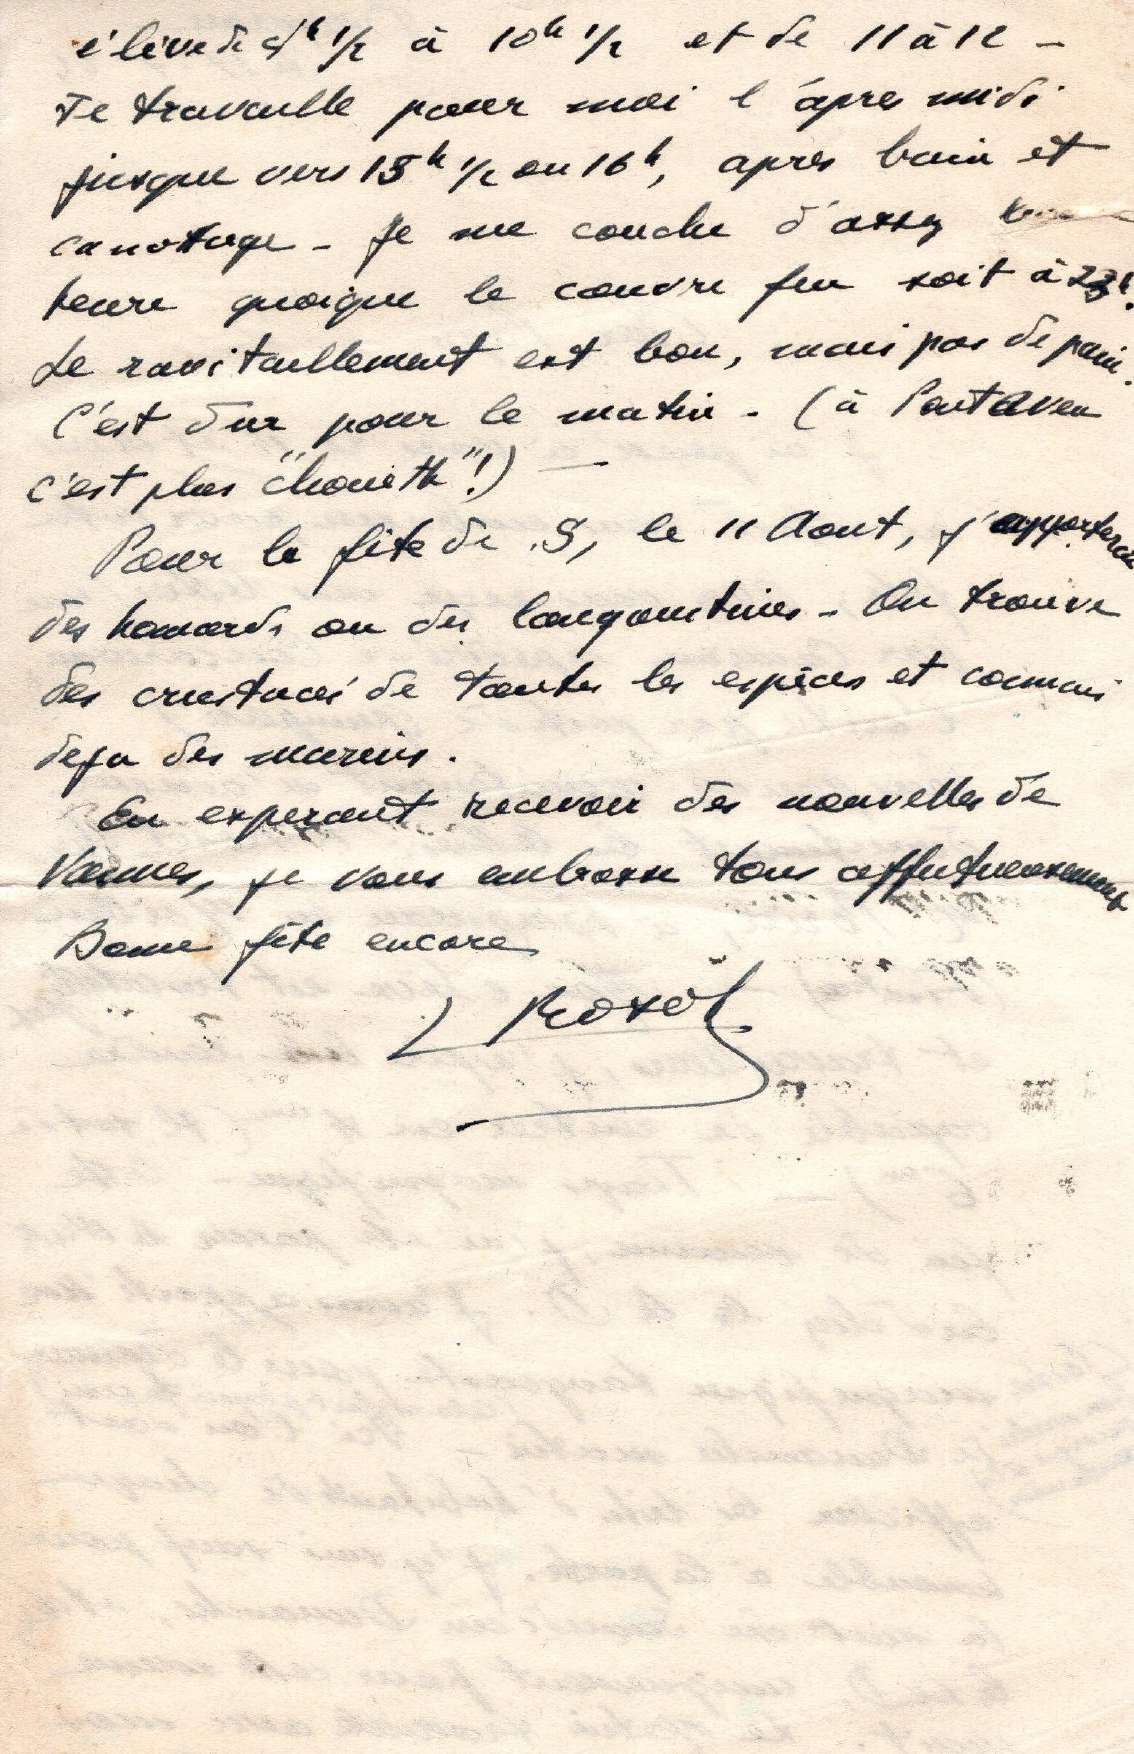 élève de 9h 1/2 à 10h 1/2 et de 11 à 12 -
Je travaille pour moi l'après midi
jusque vers 15h 1/2 ou 16h, apres bain et
canotage - Je me couche d'assez
heure quoique le couvre feu soit à 23h.
Le ravitaillement est bon, mais pas de pain.
C'est dur pour le matin - (à Pont Aven
c'est plus "chouette"!) -
Pour la fête de S, le 11 Aout, j'apporterai
des homards ou des langoustines - On trouve
des crustacés de toutes les espèces et connais
deja des marins.
En esperant recevoir des nouvelles de
Vannes, je vous embrasse tous affectueusement
Bonne fête encore